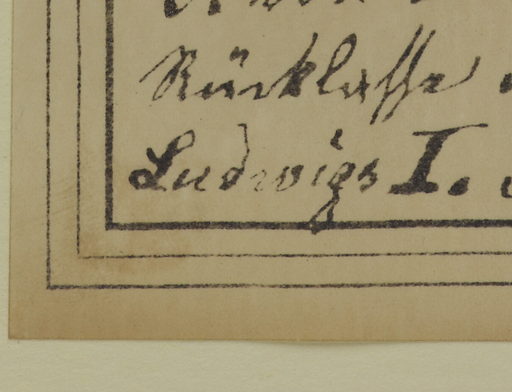 Rücklasse
Ludwigs I.